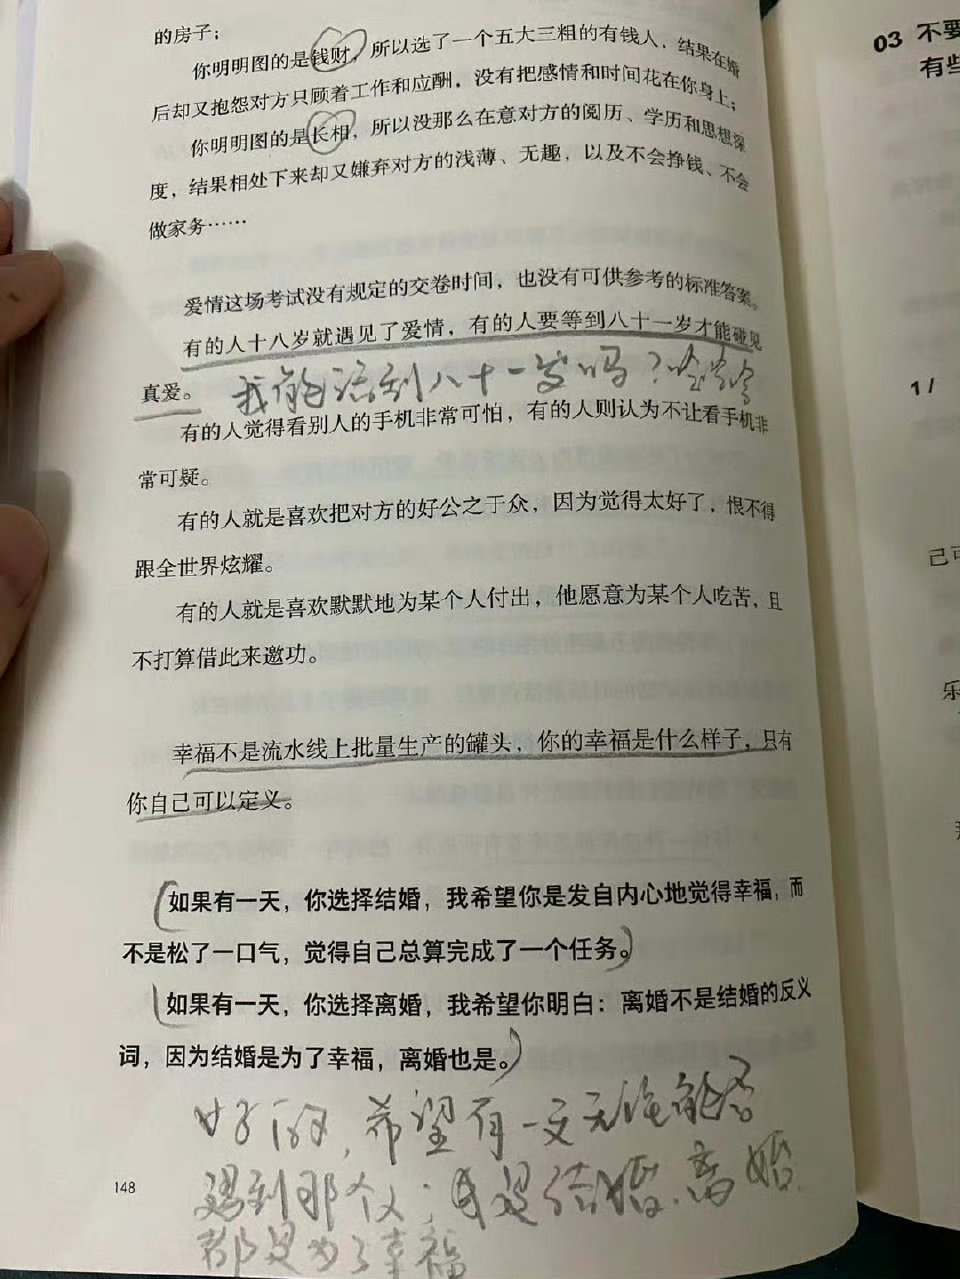 的房子；
你明明图的是钱财，所以选了一个五大三粗的有钱人，结果在婚
后却又抱怨对方只顾着工作和应酬，没有把感情和时间花在你身上；
你明明图的是长相，所以没那么在意对方的阅历、学历和思想深
度，结果相处下来却又嫌弃对方的浅薄、无趣，以及不会挣钱、不会
做家务……
爱情这场考试没有规定的交卷时间，也没有可供参考的标准答案。
有的人十八岁就遇见了爱情，有的人要等到八十一岁才能碰见
真爱。
我能活到八十一岁吗？哈哈哈
有的人觉得看别人的手机非常可怕，有的人则认为不让看手机非
常可疑。
有的人就是喜欢把对方的好公之于众，因为觉得太好了，恨不得
跟全世界炫耀。
有的人就是喜欢默默地为某个人付出，他愿意为某个人吃苦，且
不打算借此来邀功。
幸福不是流水线上批量生产的罐头，你的幸福是什么样子，只有
你自己可以定义。
如果有一天，你选择结婚，我希望你是发自内心地觉得幸福，而
不是松了一口气，觉得自己总算完成了一个任务。
如果有一天，你选择离婚，我希望你明白：离婚不是结婚的反义
词，因为结婚是为了幸福，离婚也是。
好的，希望有一天无论能否
遇到那个人；结婚、离婚，
都是为了幸福
148
03 不要
有些
1 /
己可
乐